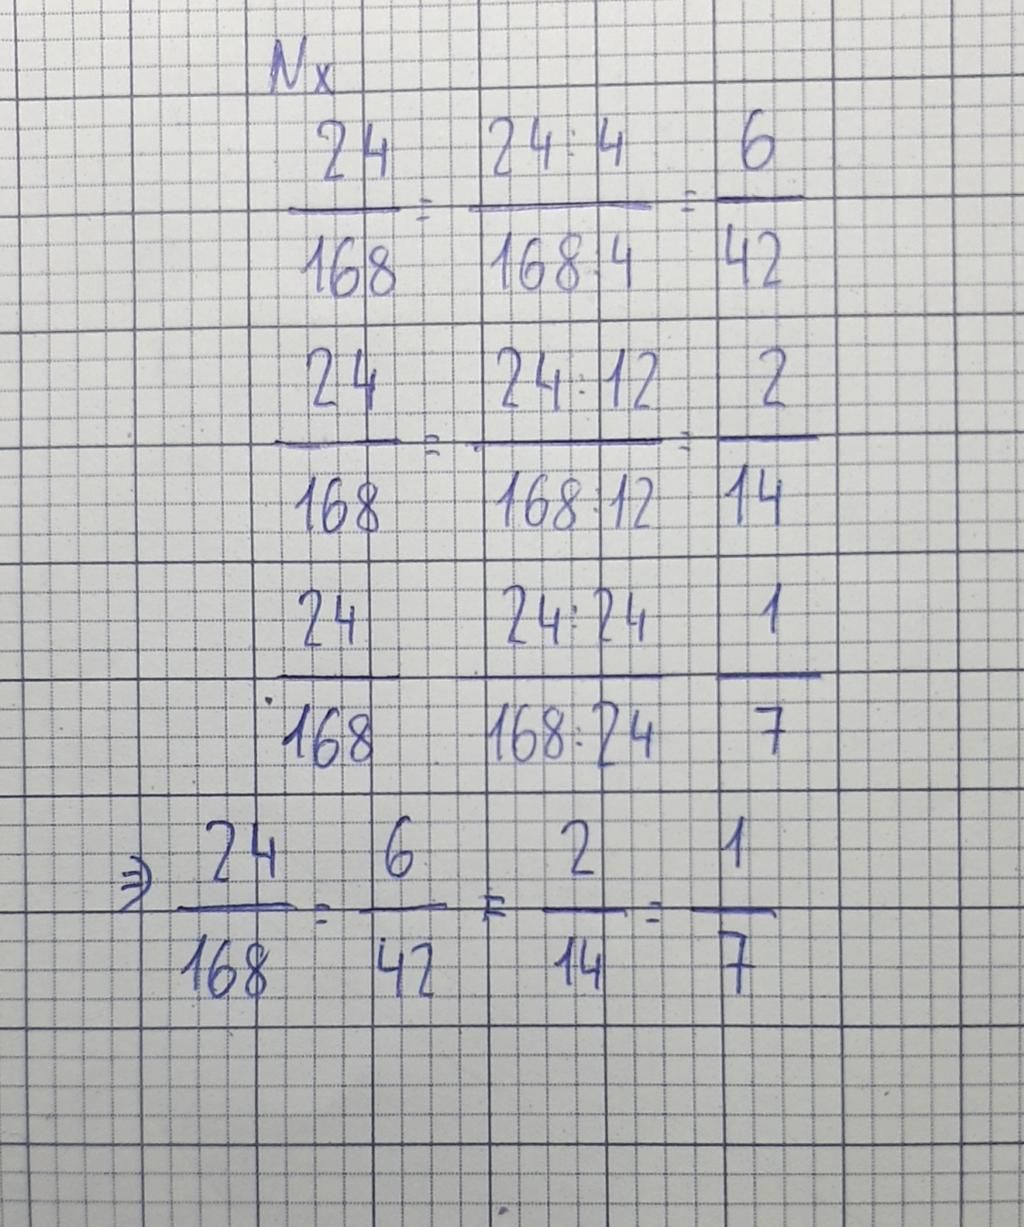 Nx
24/168 = 24:4/168:4 = 6/42
24/168 = 24:12/168:12 = 2/14
24/168 24:24/168:24 1/7
⇒ 24/168 = 6/42 = 2/14 = 1/7